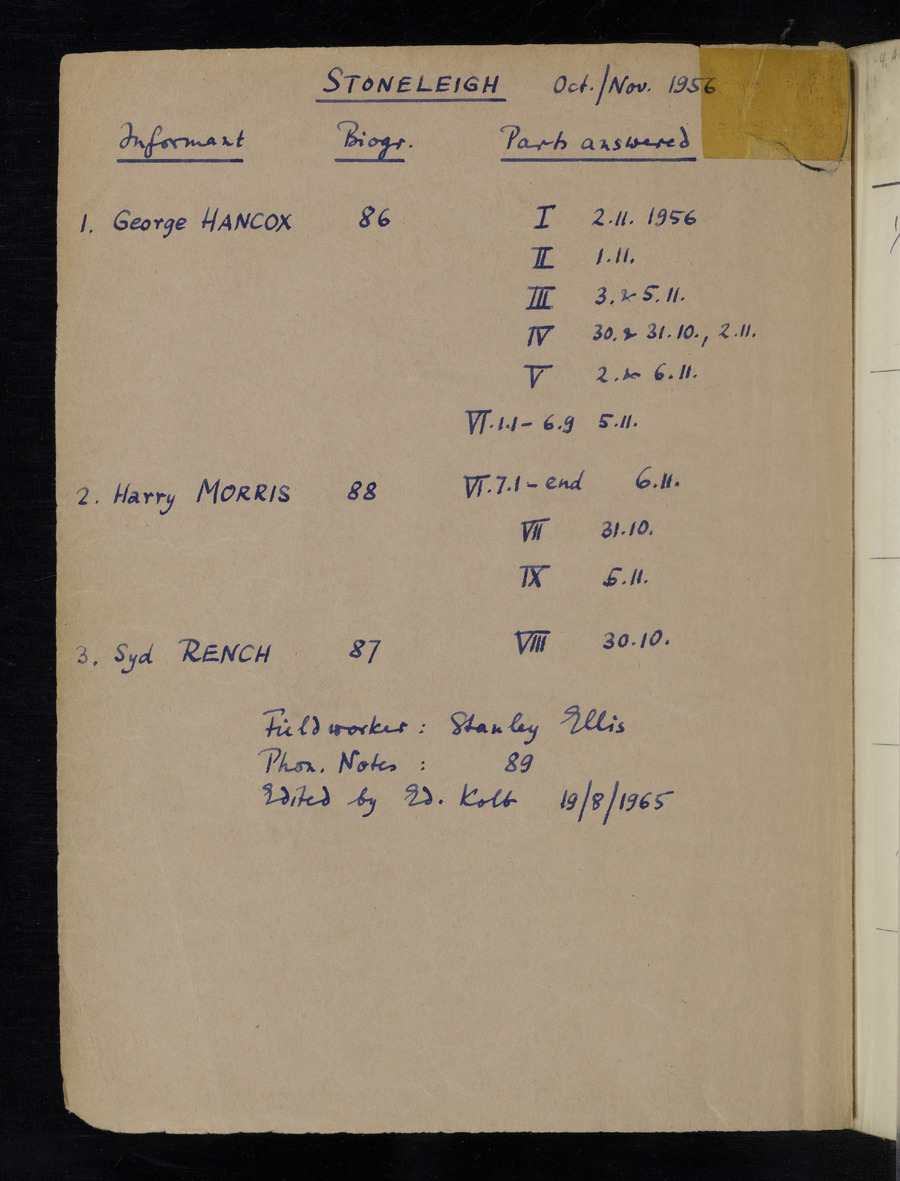 STONELEIGH Oct./Nov. 1956
Informant Biogr. Parts answered
1. George HANCOX 86 I 2.11. 1956
II 1.11.
III 3. & 5.11.
IV 30. & 31.10., 2.11.
V 2. & 6.11.
VI.1.1 - 6.9 5.11.
2. Harry MORRIS 88 VI.7.1 - end 6.11.
VII 31.10.
IX 5.11.
3. Syd RENCH 87 VIII 30.10.
Fieldworker : Stanley Ellis
Phon. Notes : 89
Edited by Ed. Kolb 19/8/1965